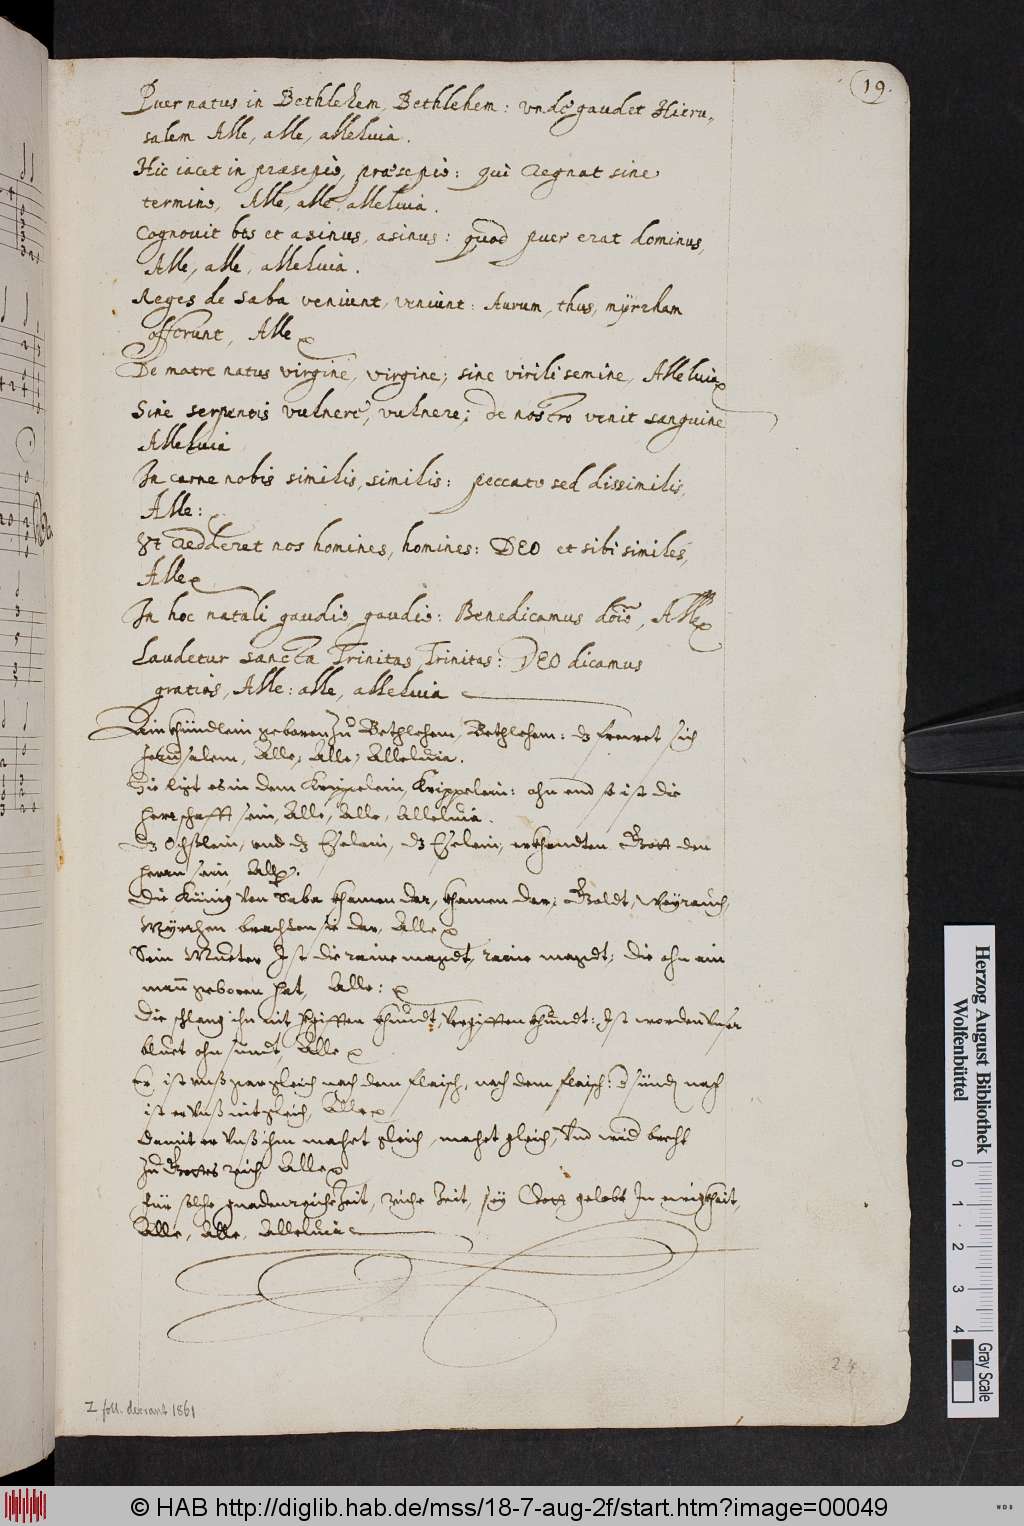 19.
Puer natus in Bethlehem, Bethlehem: vnde gaudet Hieru„
salem Alle, alle, alleluia.
Hic iacet in præsepio, præsepio: qui regnat sine
termino, Alle, alle, alleluia.
Cognouit bos et asinus, asinus: quod puer erat dominus,
Alle, alle, alleluia.
Reges de Saba veniunt, veniunt: Aurum, thus, mÿrrham
offerunt, Alle
De matre natus virgine, virgine; sine virili semine, Alleluia
Sine serpentis vulnere, vulnere; de nostro venit sanguine
Alleluia
In carne nobis similis, similis: peccato sed dissimilis,
Alle:
Vt redderet nos homines, homines: DEO et sibi similes,
Alle
In hoc natali gaudio, gaudio: Benedicamus dõio, Alle
Laudetur sancta Trinitas, Trinitas: DEO dicamus
gratias, Alle: alle, alleluia
Ain khindlein geboren zů Bethlehem, Bethlehem: dz frewet sich
Jerusalem, Alle, Alle, Alleluia.
Hie ligt es in dem Krippelein, Krippelein: ohn end ist die
herrschafft sein, Alle, Alle, Alleluia.
Dz Ochßlein, vnd dz Eselein, dz Eselein, erkhandten Gott den
herrn sein Alle
Die Künig von Saba khamen dar, khamen dar; Goldt, Weyrauch,
Myrrhen brachten sie dar, Alle
Sein Můeter Ist die raine magdt, raine magdt; die ohn ain
mañ geboren hat, Alle:
Die schlang ihn nit khundt, vergifften khundt: Ist worden vnser
bluet ohn sündt, Alle
Er ist vnß gar gleich nach dem fleisch, nach dem fleisch: sünden nach
ist er vnß nit gleich, Alle
Damit er vnß ihm machet gleich, machet gleich, Vnd wider brecht
zů Gottes reich, Alle
Für solche gnadenreiche Zeit, reiche Zeit, sey Gott gelobt In ewigkheit,
Alle, Alle, Alleluia
24
2 foll. deerant 1861
Herzog August Bibliothek
Wolfenbüttel
0 1 2 3 4
Gray Scale
© HAB http://diglib.hab.de/mss/18-7-aug-2f/start.htm?image=00049